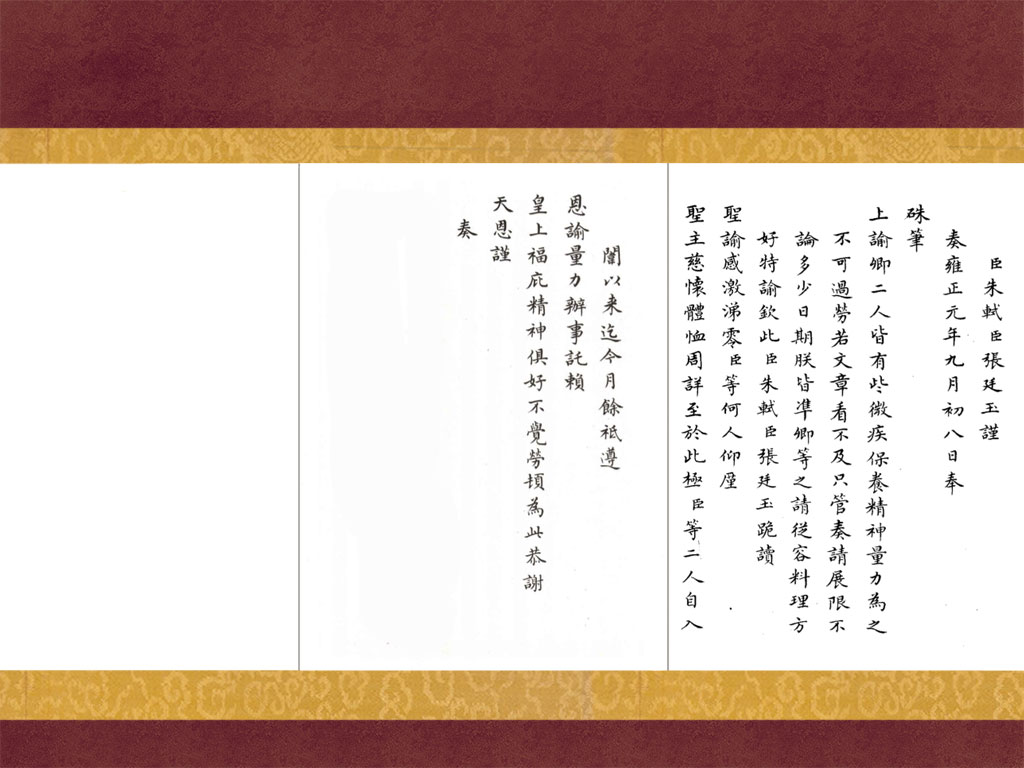 臣朱軾臣張廷玉謹
奏雍正元年九月初八日奉
硃筆
上諭卿二人皆有些微疾保養精神量力為之
不可過勞若文章看不及只管奏請展限不
論多少日期朕皆準卿等之請從容料理方
好特諭欽此臣朱軾臣張廷玉跪讀
聖諭感激涕零臣等何人仰厪
聖主慈懷體恤周詳至於此極臣等二人自入
闈以来迄今月餘祗遵
恩諭量力辦事託賴
皇上福庇精神俱好不覺勞頓為此恭謝
天恩謹
奏